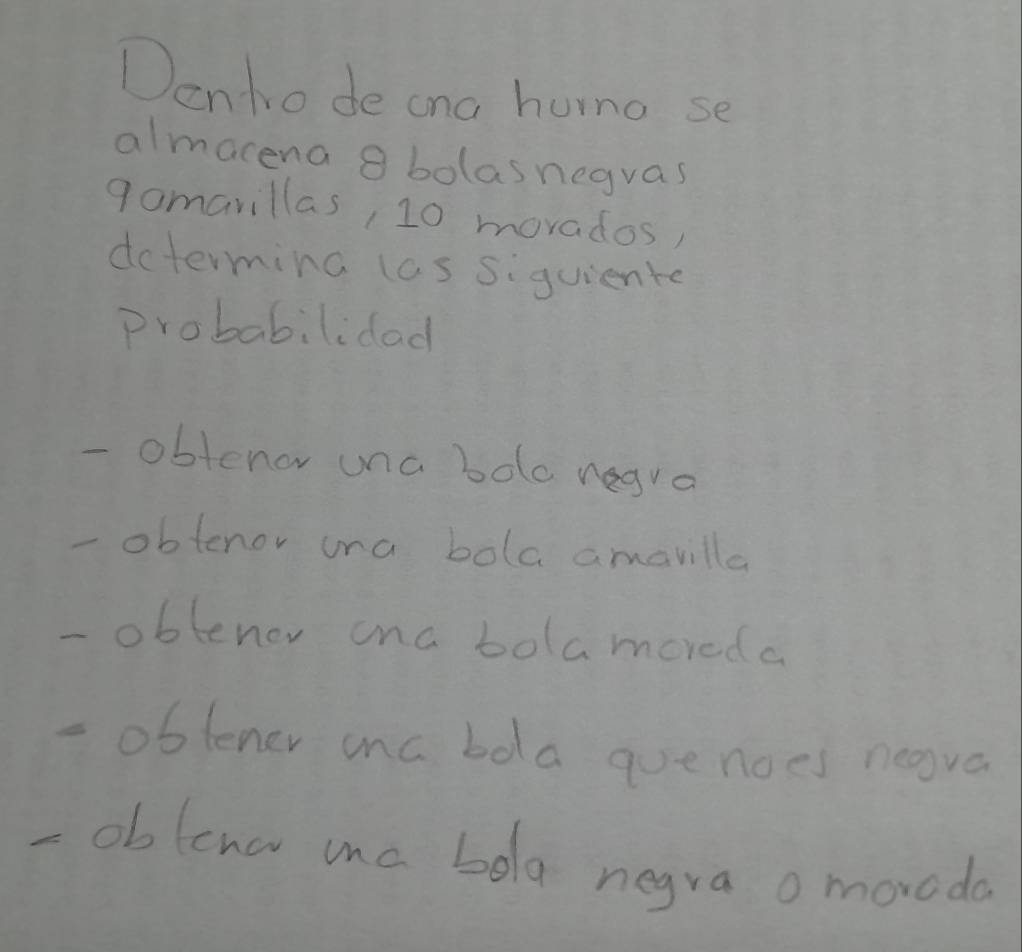 Dentro de una hurna se
almacena 8 bolas negras
9 amarillas, 10 morados,
determina las siguiente
probabilidad
- obtener una bola negra
- obtener una bola amarilla
- obtener una bola morada
- obtener una bola que no es negra
- obtener una bola negra o morada